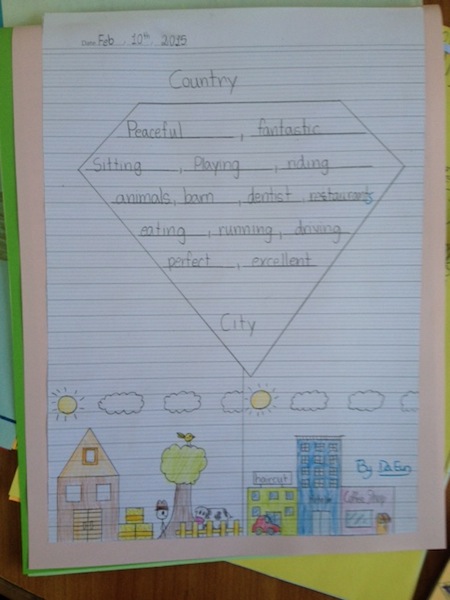 Date: Feb. 10th. 2015
Country
Peaceful, fantastic
Sitting, Playing, riding
animals, barn, dentist, restaurants
eating, running, driving
perfect, excellent
City
By DaEun
haircut
Coffee Shop